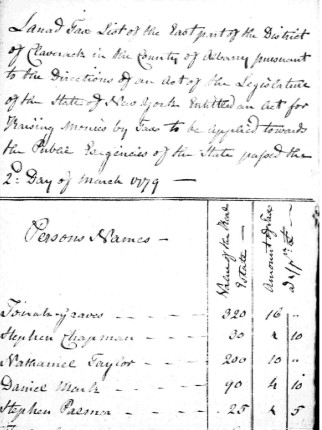 Lanad Tax List of the East part of the District
of Claverack in the County of Albany pursuant
to the Directions of an act of the Legislature
of the State of New York Entitled an Act for
Raising Monies by Tax to be applied towards
the Public Exigencies of the State passed the
2d Day of March 1779 —
Persons Names — Value of the Real Estate — Amount of Tax
Graves - - - 320 16 "
Stephen Chapman - - - 30 4 10
Nathaniel Taylor - - - 200 10 "
Daniel - - - 90 4 10
Stephen - - - 25 4 5